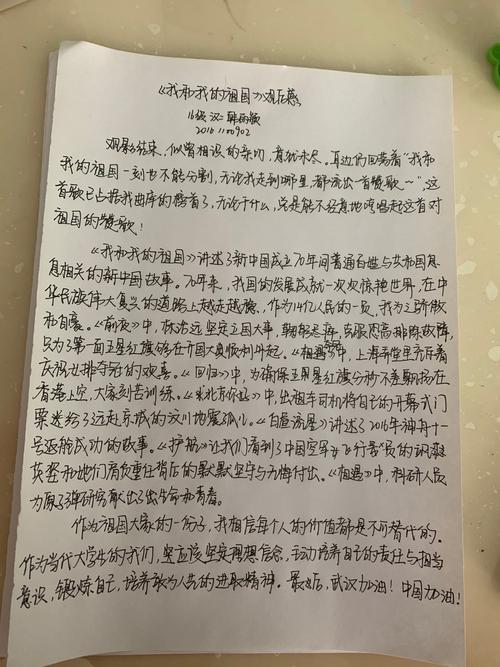 《我和我的祖国》观后感
16级 汉二 韩雨欣
2016110902
观影结束，似曾相识的亲切，意犹未尽。耳边仍回荡着“我和
我的祖国一刻也不能分割，无论我走到哪里，都流出一首赞歌～”，这
首歌已占据我曲库的榜首了，无论干什么，总是能不经意地哼唱起这首对
祖国的赞歌！
《我和我的祖国》讲述了新中国成立70年间普通百姓与共和国息
息相关的新中国故事。70年来，我国的发展成就一次次惊艳世界，在中
华民族伟大复兴的道路上越走越稳，作为14亿人民的一员，我为之骄傲
和自豪。《前夜》中，林治远坚定立国大事，克服恐高排除故障，
只为了第一面五星红旗能够在开国大典顺利升起。《相遇》中，上海弄堂里充斥着
庆祝女排夺冠的欢喜。《回归》中，为确保五星红旗分秒不差飘扬在
香港上空，大家刻苦训练。《北京你好》中，出租车司机将自己的开幕式门
票送给了远赴京城的汶川地震孤儿。《白昼流星》讲述了2016年神舟十一
号返舱成功的故事。《护航》让我们看到了中国空军女飞行员的飒爽
英姿和她们肩负重任背后的默默坚守与无悔付出。《相遇》中，科研人员
为原子弹研究献出了生命和青春。
作为祖国大家的一份子，我相信每个人的价值都是不可替代的。
作为当代大学生的我们，更应该坚定理想信念，主动培养自己的责任与担当
意识，锻炼自己，培养敢为人先的进取精神。最后，武汉加油！中国加油！